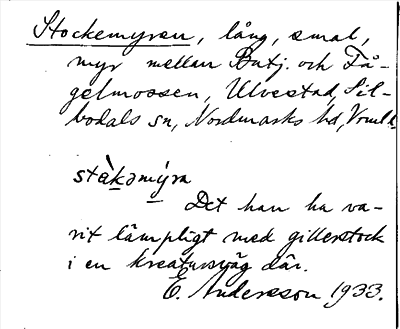 Stockemyren, lång, smal,
myr mellan Butj. och Få-
gelmossen, Ulvestad, Sil-
bodals sn, Nordmarks hd, Vrml.
stàkəmýra
Det kan ha va-
rit lämpligt med gillerstock
i en kreatursväg där.
E. Andersson 1933.